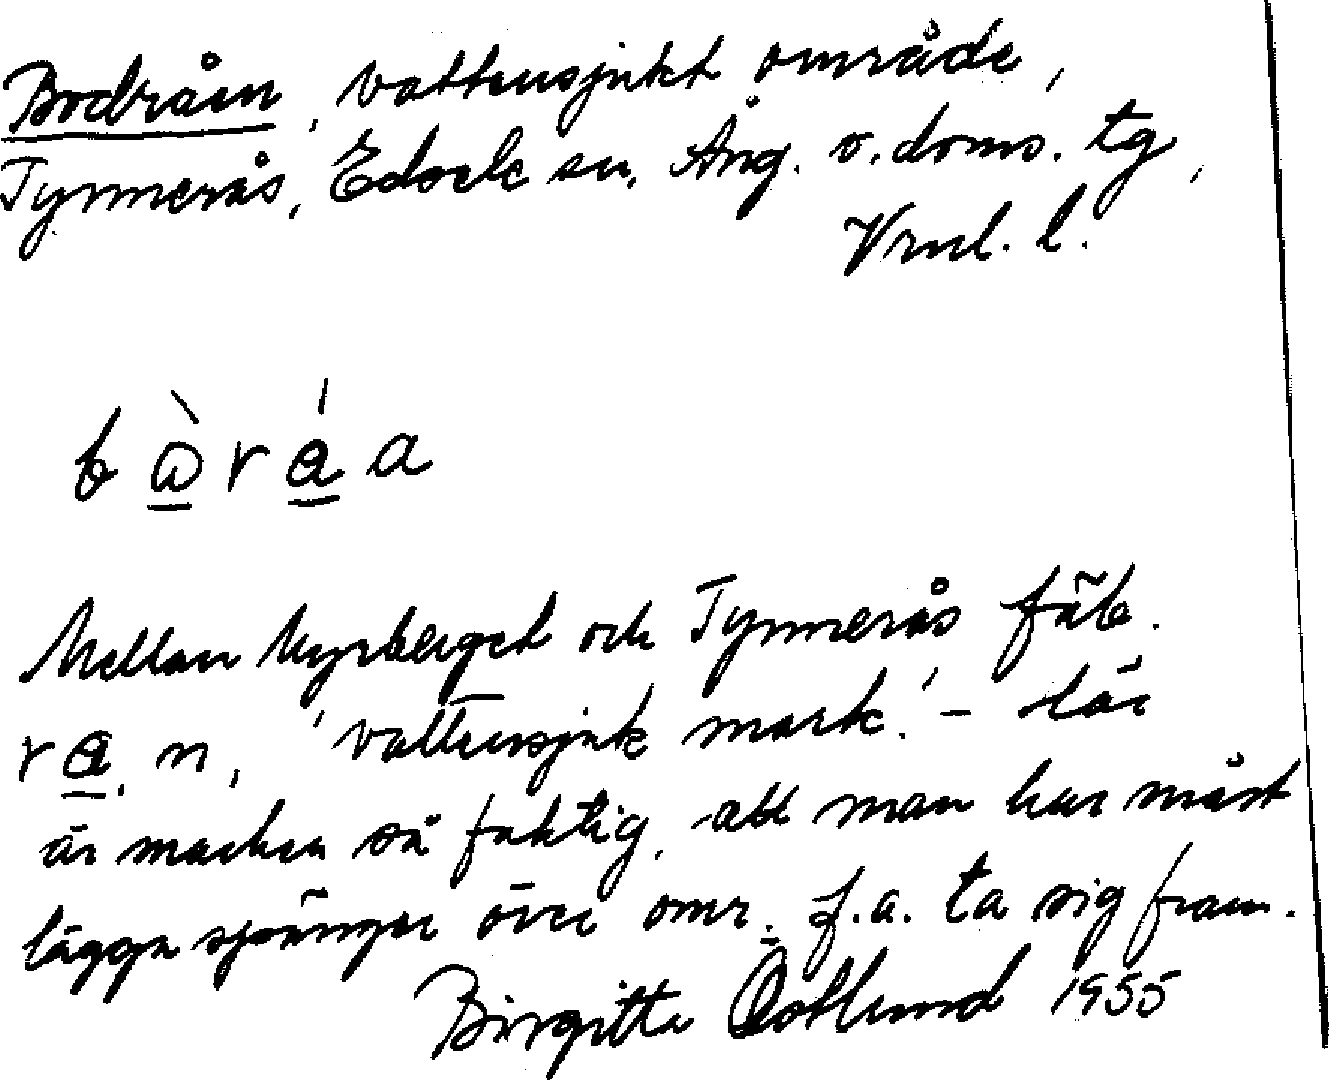 Bodråen, vattensjukt område,
Tynnerås, Edsele sn, Ång. v. doms. tg,
Vrnl. l.
b ò r á a
Mellan Myrberget och Tynnerås fäb.
r a, n, 'vattensjuk mark' – här
är marken så fuktig, att man har måst
lägga spänger över omr. f.a. ta sig fram.
Birgitta Östlund 1955